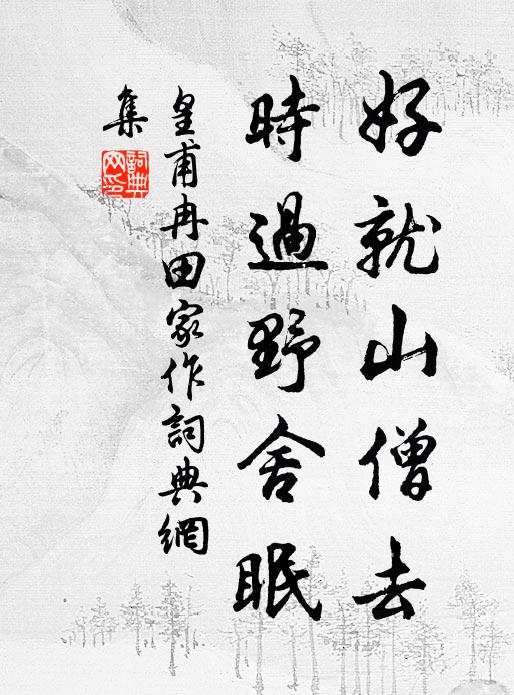 好就山僧去
時過野舍眠
皇甫冉田家作詞典網
集
詞典網印